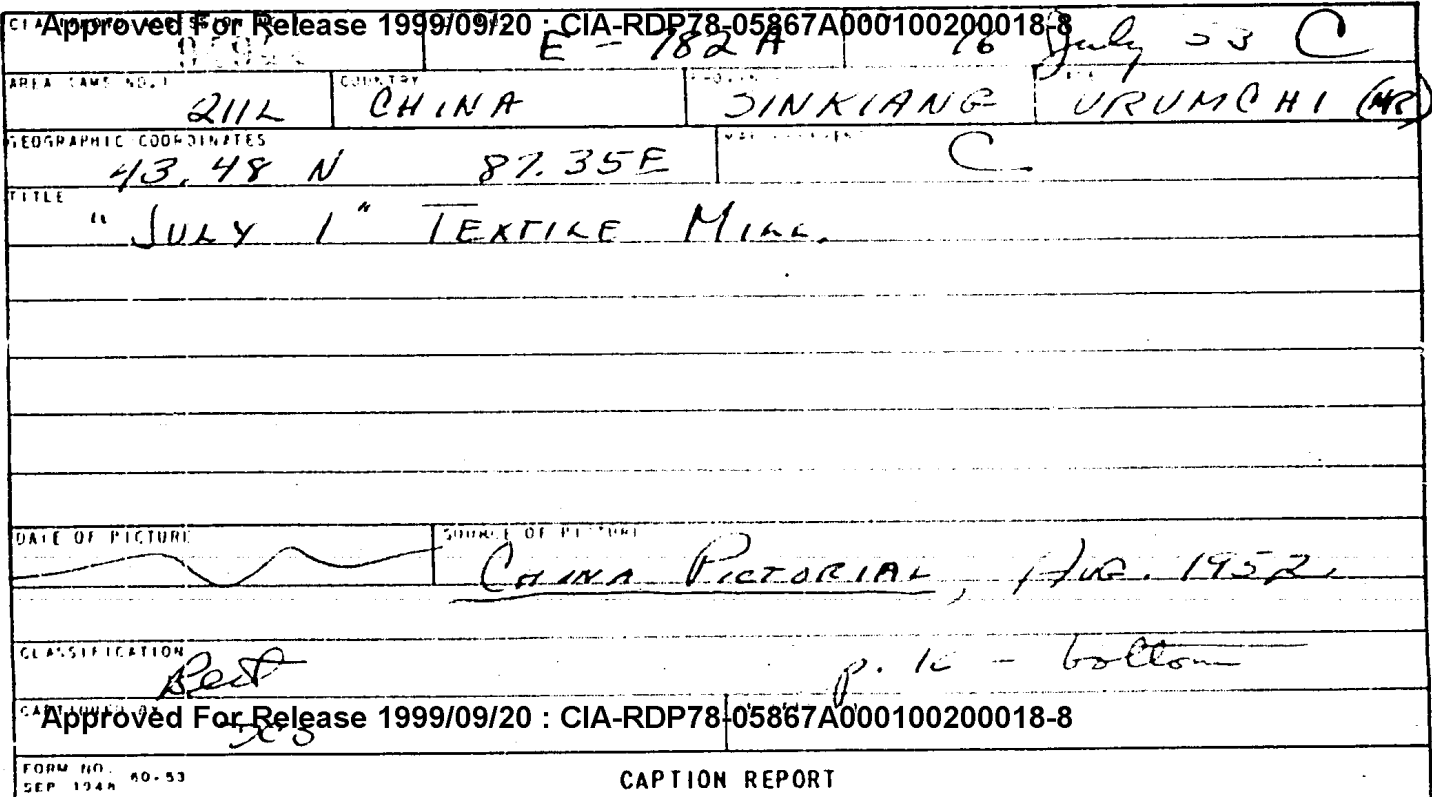 Approved For Release 1999/09/20 : CIA-RDP78-05867A000100200018-8
E - 782A 16 July 53 C
AREA (AMS NO.) COUNTRY
211L CHINA SINKIANG URUMCHI (MR)
GEOGRAPHIC COORDINATES
43.48 N 87.35E C
TITLE
"JULY 1" TEXTILE MILL.
DATE OF PICTURE SOURCE OF PICTURE
CHINA PICTORIAL, AUG. 1952.
CLASSIFICATION
Rest p. - bottom
CAPTIONED BY
Approved For Release 1999/09/20 : CIA-RDP78-05867A000100200018-8
FORM NO. 60-53
SEP 1948
CAPTION REPORT